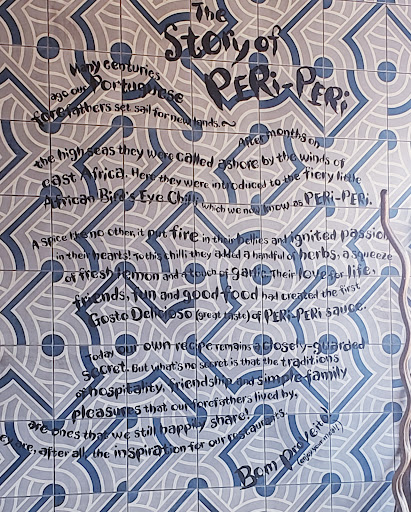 The
Story of
PERi-PERi
Many centuries
ago our Portuguese
forefathers set sail for new lands.~
After months on
the high seas they were called ashore by the winds of
east Africa. Here they were introduced to the fiery little
African Bird's Eye Chilli which we now know as PERi-PERi.
A spice like no other, it put fire in their bellies and ignited passion
in their hearts! To this chilli they added a handful of herbs, a squeeze
of fresh lemon and a touch of garlic. Their love for life,
friends, fun and good food had created the first
Gosto Delicioso (great taste) of PERi-PERi sauce.
Today our own recipe remains a closely-guarded
secret. But what's no secret is that the traditions
of hospitality, friendship and simple family
pleasures that our forefathers lived by,
are ones that we still happily share!
They are, after all, the inspiration for our restaurants.
Bom proveito!